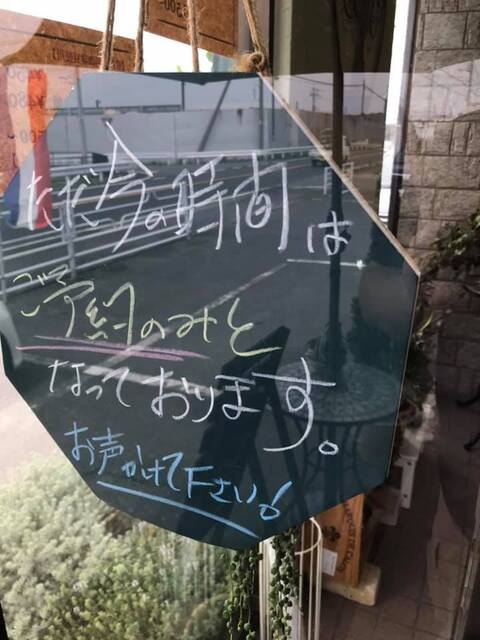 ただ今の時間は
ご予約のみと
なっております。
お声かけて下さい!